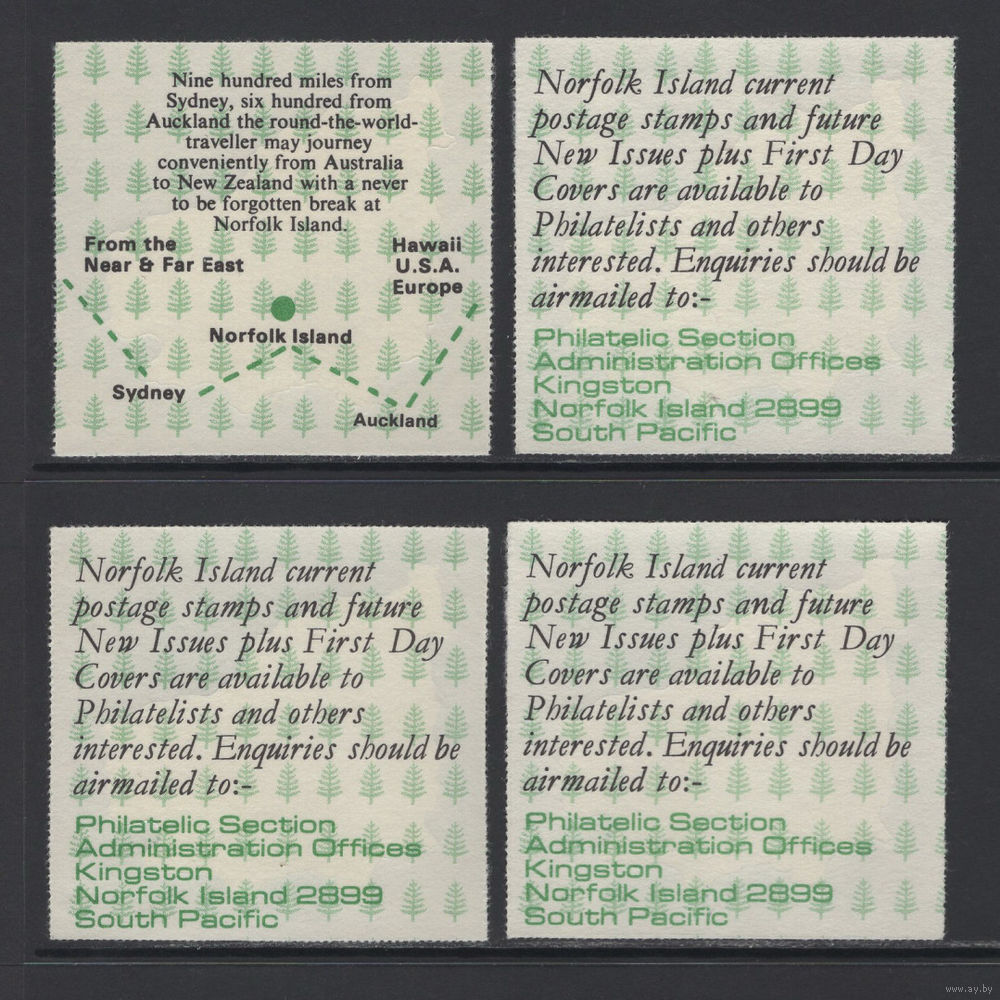 Nine hundred miles from
Sydney, six hundred from
Auckland the round-the-world-
traveller may journey
conveniently from Australia
to New Zealand with a never
to be forgotten break at
Norfolk Island.
From the
Near & Far East
Hawaii
U.S.A.
Europe
Norfolk Island
Sydney
Auckland
Norfolk Island current
postage stamps and future
New Issues plus First Day
Covers are available to
Philatelists and others
interested. Enquiries should be
airmailed to:-
Philatelic Section
Administration Offices
Kingston
Norfolk Island 2899
South Pacific
Norfolk Island current
postage stamps and future
New Issues plus First Day
Covers are available to
Philatelists and others
interested. Enquiries should be
airmailed to:-
Philatelic Section
Administration Offices
Kingston
Norfolk Island 2899
South Pacific
Norfolk Island current
postage stamps and future
New Issues plus First Day
Covers are available to
Philatelists and others
interested. Enquiries should be
airmailed to:-
Philatelic Section
Administration Offices
Kingston
Norfolk Island 2899
South Pacific
www.ay.by